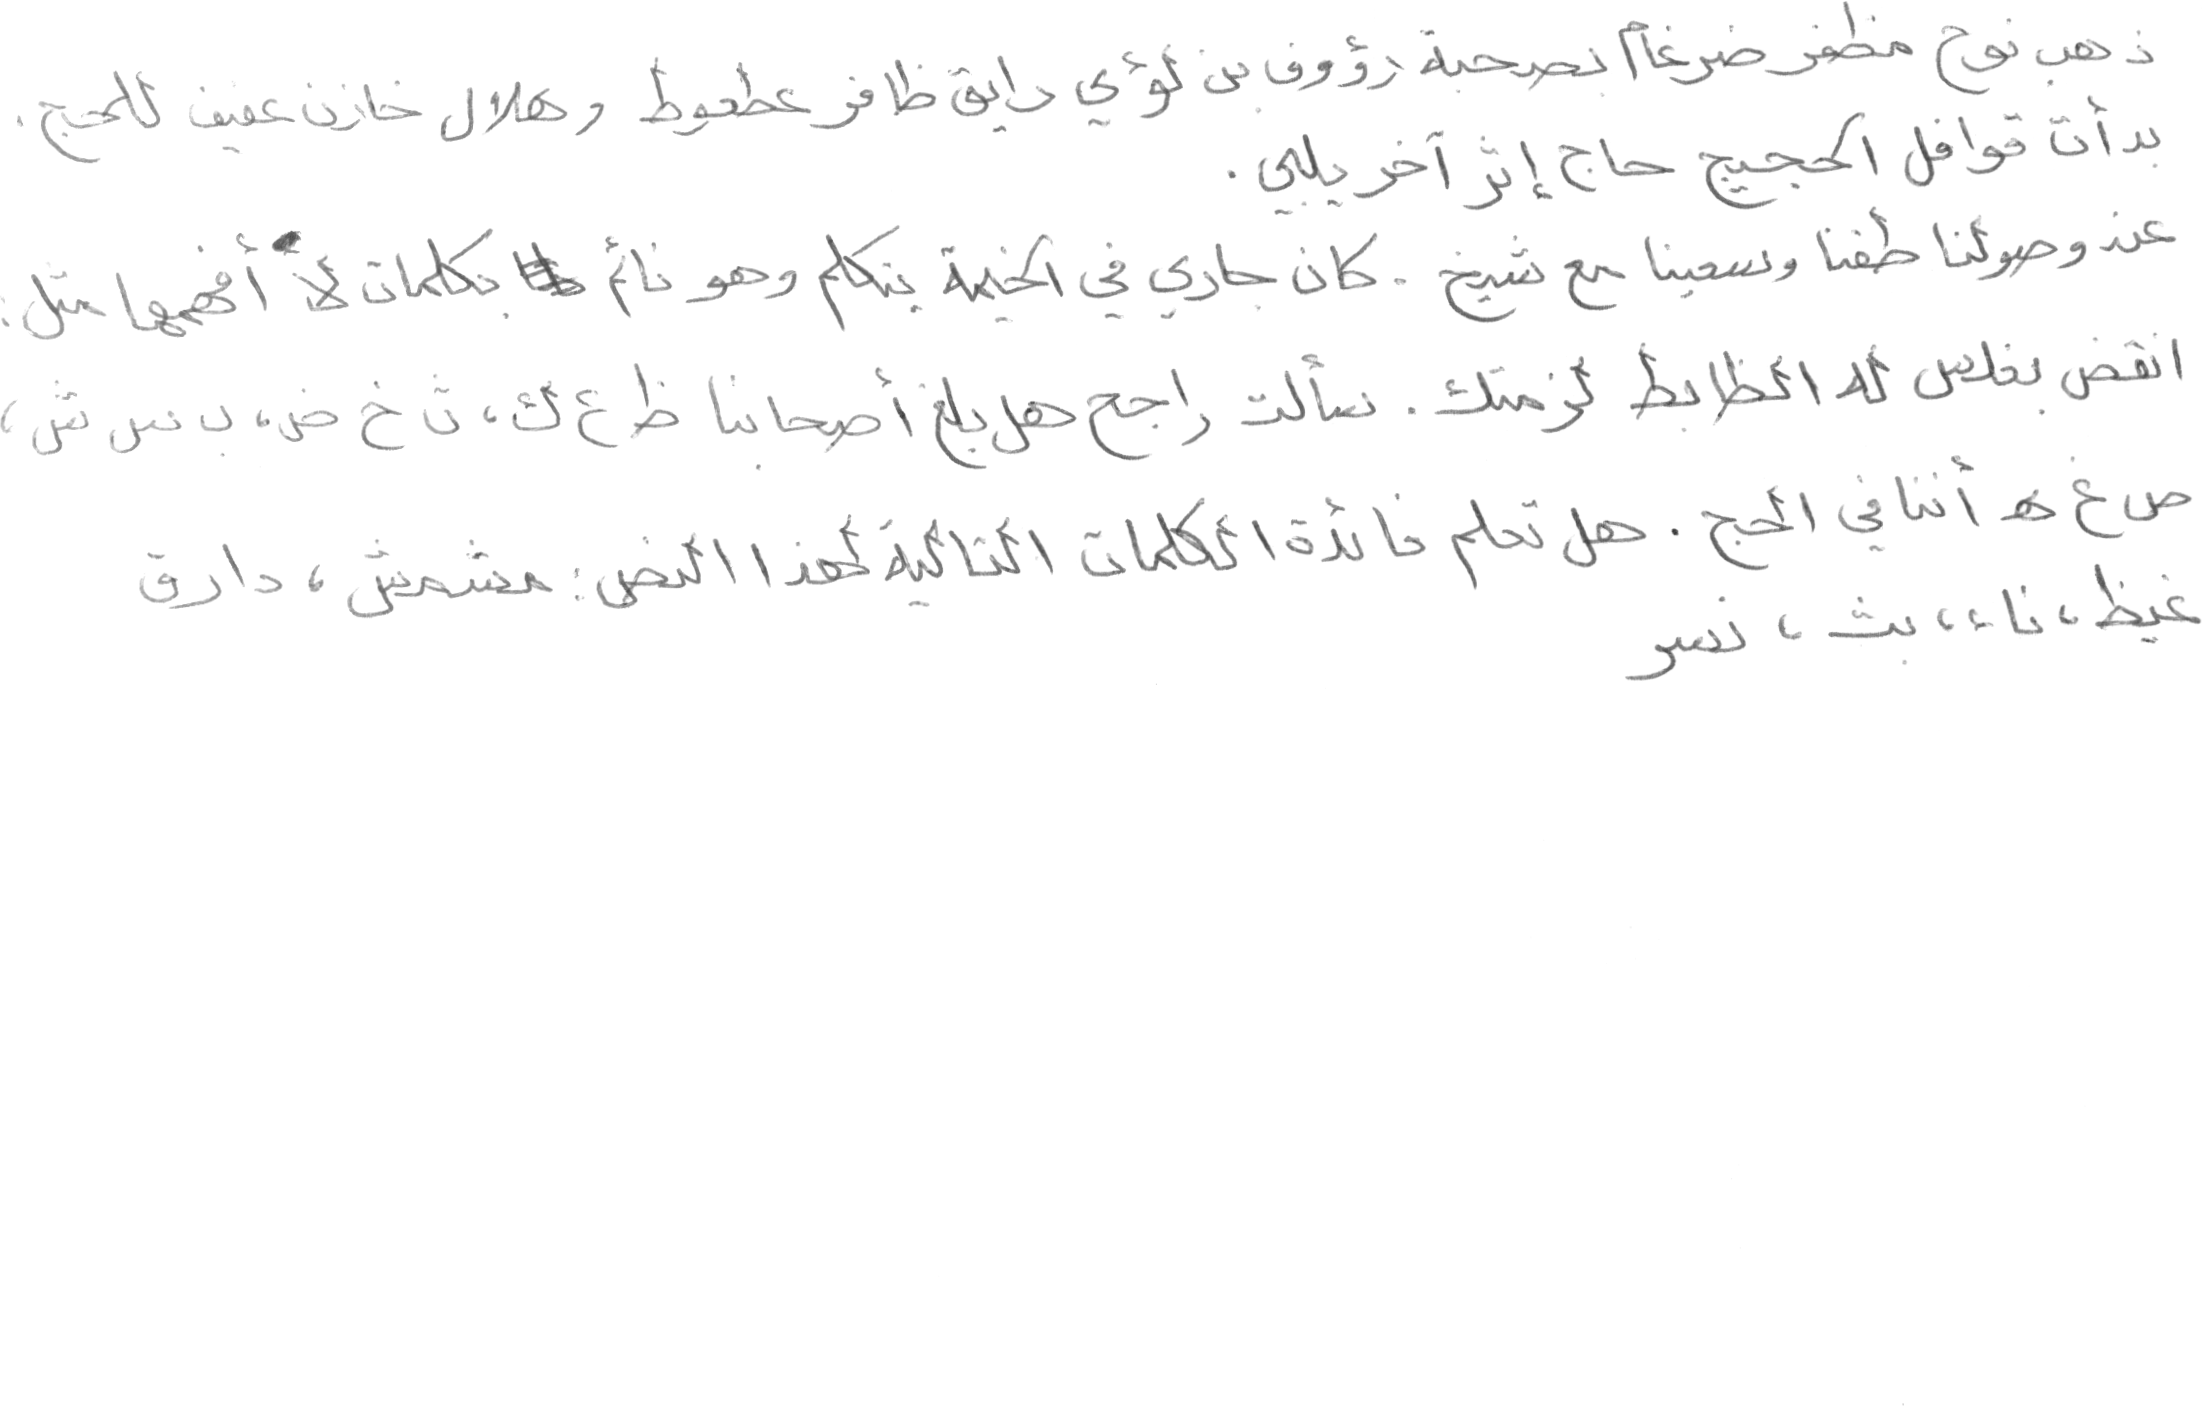 ذهب نوح مظفر ضرغام بصحبة رؤوف بن لؤي رايق ظافر عطعوط وهلال خازن عفيف للحج.
بدأت قوافل الحجيج حاج إثر آخر يلبي.
عند وصولنا طفنا وسعينا مع شيخ. كان جاري في الخيمة يتكلم وهو نائم بكلمات لا أفهمها مثل:
انقض بغلس له الظابط لزمتك. سألت راجح هل بلغ أصحابنا ظ ع ك، ث خ ض، ب س ش،
ص غ ه أننا في الحج. هل تعلم فائدة الكلمات التالية لهذا النص: مشمش، دارق
غيظ، ناء، بث، نسر